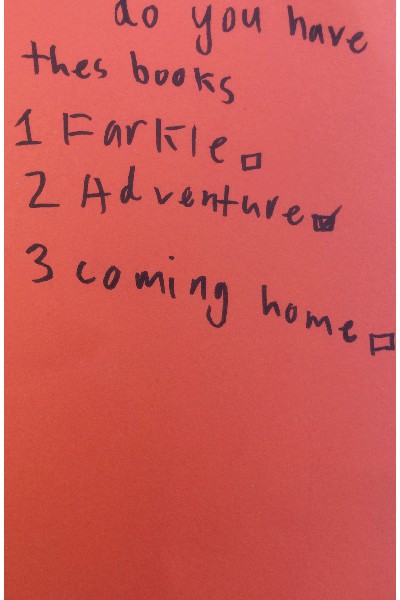 do you have
thes books
1 Farkle ☐
2 Adventure ☑
3 coming home ☐